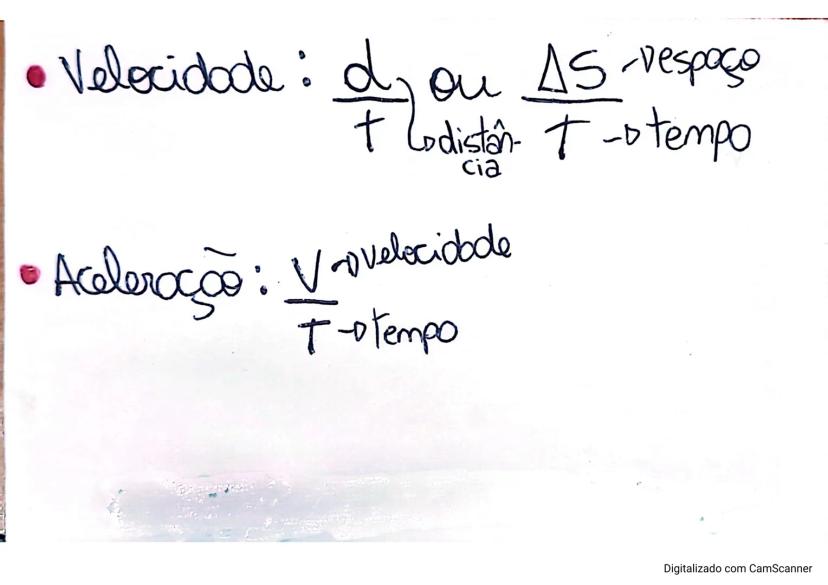 • Velocidade: d ou ΔS → espaço
t ↳ distân- T → tempo
cia
• Aceleração: V → velocidade
T → tempo
Digitalizado com CamScanner